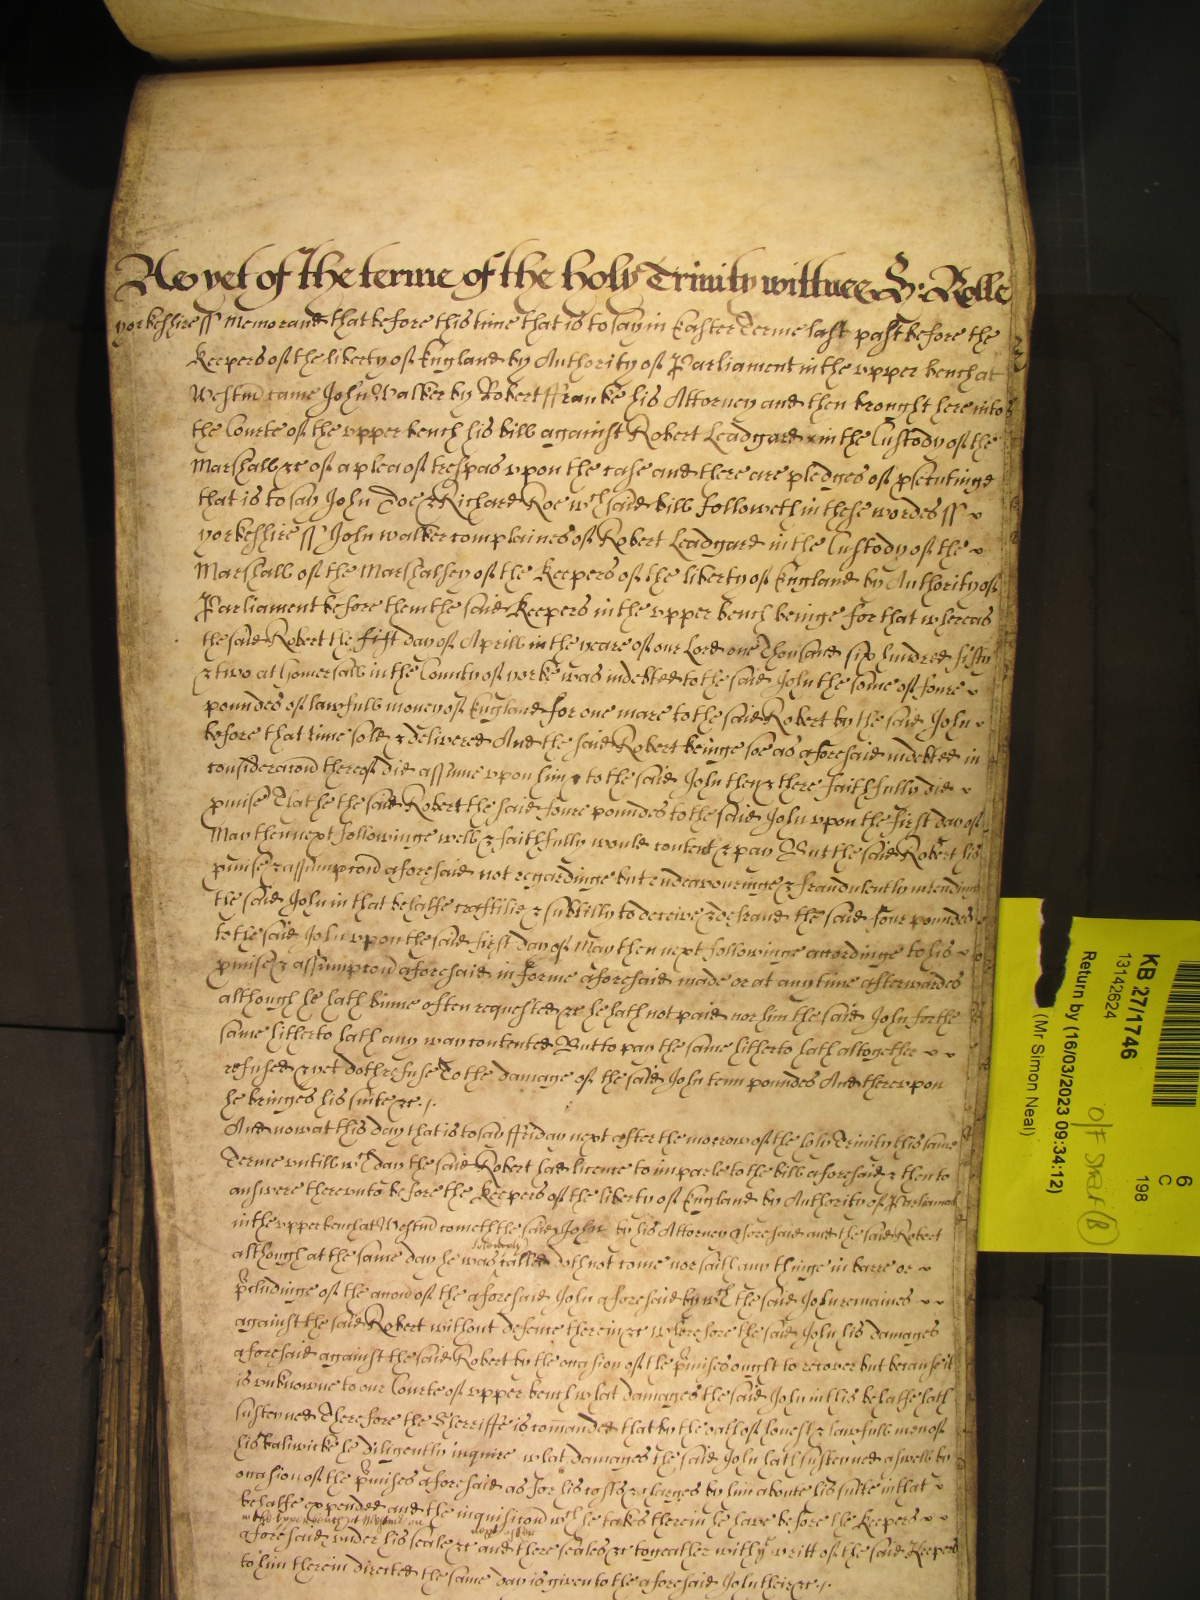 As yet of the terme of the holy Trinity wittnes H: Rolle
yorkeshire ss Memorand that before this time that is to say in Easter Terme last past before the
Keepers of the liberty of England by Authority of Parliament in the vpper bench at
Westm came John Walker by Robert ffranke his Attorney and then brought here into
the Courte of the vpper bench his bill against Robert Leadgard in the Custody of the
Marshall &c of a plea of trespas vpon the case and there are pledges of psecutinge
that is to say John Doe & Richard Roe wch said bill followeth in these wordes ss
yorkeshire ss John walker complaines of Robert Leadgard in the Custody of the
Marshall of the Marshalsey of the Keepers of the liberty of England by Authority of
Parliament before them the said Keepers in the vpper bench beinge for that whereas
the said Robert the fift day of Aprill in the yeare of our Lord one Thousand six hundred fifty
& two at Gomersall in the County of yorke was indebted to the said John the some of foure
poundes of lawfull money of England for one mare to the said Robert by the said John
before that time sold & delivered And the said Robert beinge soe as aforesaid indebted in
consideracon thereof did assume vpon him & to the said John then & there faithfully did
pmise That he the said Robert the said foure poundes to the said John vpon the first day of
May then next followinge well & faithfully would content & pay But the said Robert his
pmise & assumpcon aforesaid not regardinge but endeavouringe & fraudulently intendinge
the said John in that behalfe craftilie & subtilly to deceive & defraud the said four poundes
to the said John vpon the said first day of May then next followinge accordinge to his
pmise & assumpcon aforesaid in forme aforesaid made or at any time afterwardes
although he hath binne often requested &c he hath not paid nor him the said John for the
same hitherto hath any way contented But to pay the same hitherto hath altogether
refused & yet doth refuse To the damage of the said John tenn poundes And therevpon
he bringes his suite &c.
And now at this day that is to say ffriday next after the morrow of the holy Trinity this same
Terme vntill wch day the said Robert had licence to imparle to the bill aforesaid & then to
answere therevnto before the Keepers of the liberty of England by Authority of Parliament
in the vpper bench at Westm cometh the said John by his Attorney aforesaid and the said Robert
solemnly
although at the same day he was called doth not come nor saith any thinge in barre or
pcludinge of the accon of the aforesaid John aforesaid by wch the said John remaines
against the said Robert without defence therein &c wherefore the said John his damages
aforesaid against the said Robert by the occasion of the pmises ought to recover but because it
is vnknowne to our Courte of vpper bench what damages the said John in this behalfe hath
susteyned Therefore the Sherriffe is comanded that by the oath of honest & lawfull men of
his baliwicke he diligently inquire what damages the said John hath susteyned aswell by
occasion of the pmises aforesaid as for his costs & charges by him aboute his suite in that
behalfe expended and the inquisicon wch he takes therein he have before the Keepers
in the vpper bench at Westm on next after
aforesaid vnder his seale &c and there seales &c togeather with ye writt of the said Keepers
to him therein directed the same day is given to the aforesaid John there &c.
KB 27/1746
13142624
Return by (16/03/2023 09:34:12)
(Mr Simon Neal)
6
C
198
O/F Shelf (B)